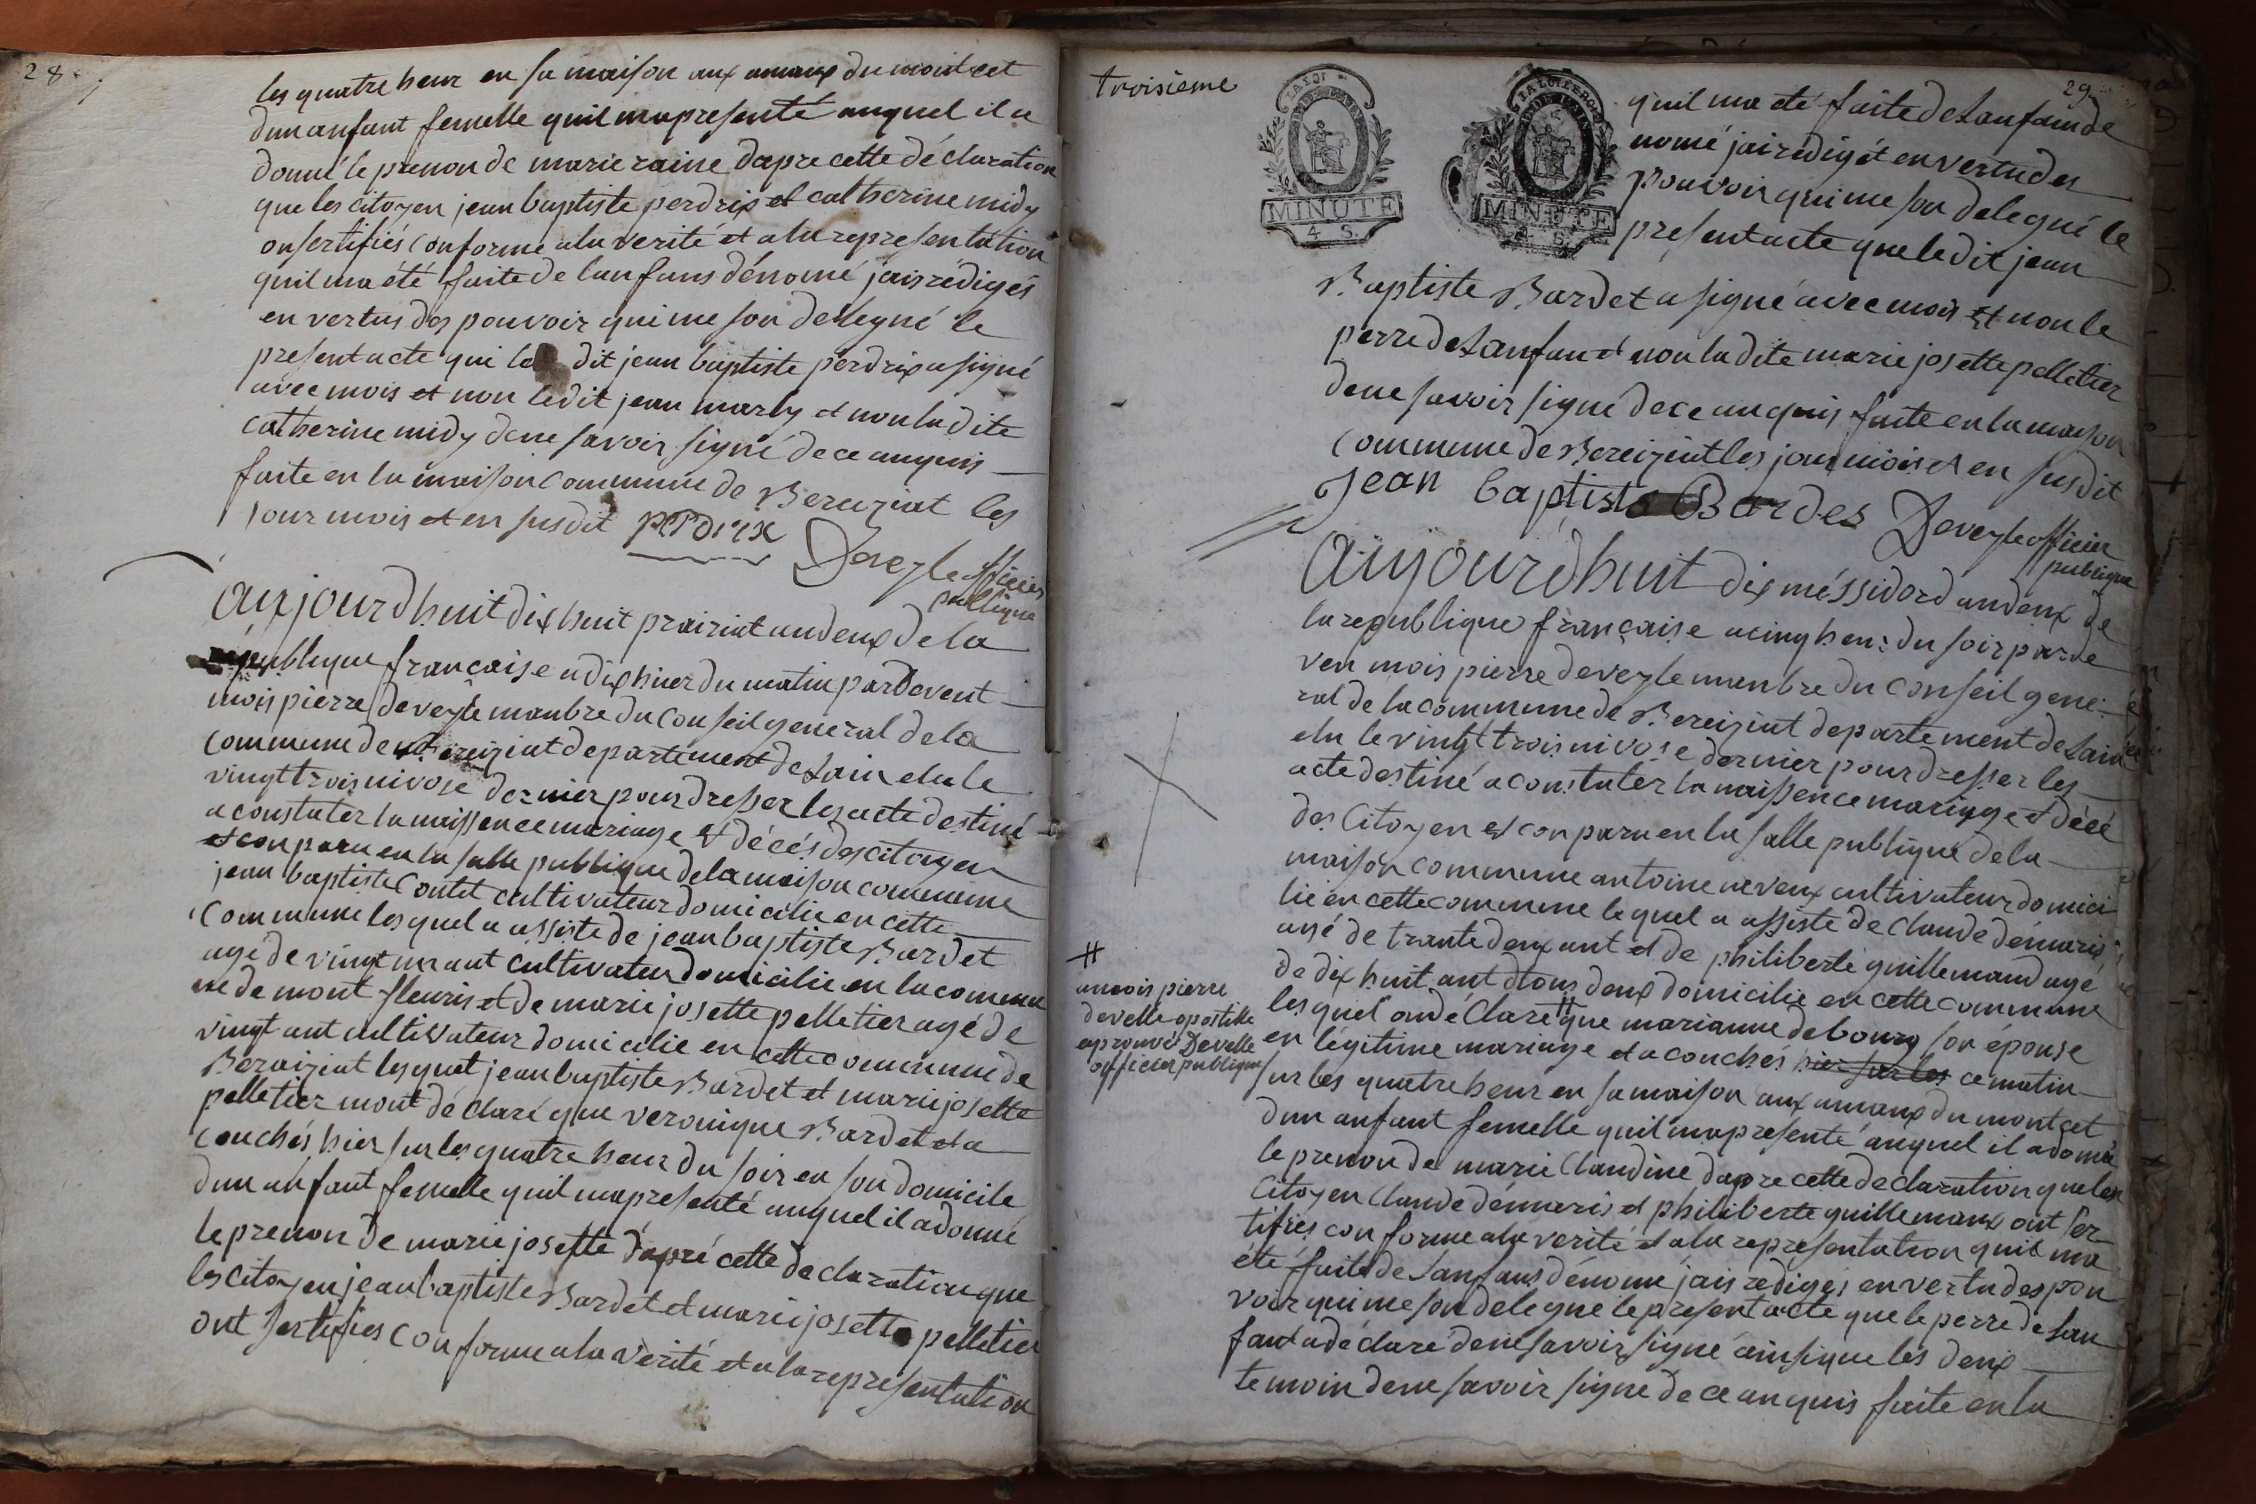 28
les quatre heur en sa maison aux amaux du mont cet
dun anfant femelle quil mapresenté auquel il a
donné le prenon de marie raine dapre cette déclaration
que les citoyen jean baptiste perdrix et catherine midy
on sertifiés conforme ala verité et ala representation
quil ma été faite de lanfans dénomé jais rédigés
en vertus des pouvoir qui me son delegué le
present acte qui le dit jean baptiste perdrix a signé
avec mois et non ledit jean marly et non la dite
catherine midy de ne savoir signé de ce anquis
faite en la maison commune de Bereiziat les
jour mois et en susdit perdrix
Deveyle officier
publique
Aujourdhuit dix huit prairiat an deux de la
republique française a dix huer du matin par devent
mois pierre deveyle manbre du conseil general de la
commune de Bereiziat departement de Lain elu le
vingt trois nivose dernier pour dresser les acte destiné
a constater la naissence mariage et décés des citoyen
et conparu en la salle publique de la maison commune
jean baptiste contet cultivateur domicilie en cette
commune lesquel a assiste de jean baptiste Bardet
agé de vingt un ant cultivateur domicilie en la commu
ne de mont fleuris et de marie josette pelletier agé de
vingt ant cultivateur domicilie en cette commune de
Beraiziat lesquel jean baptiste Bardet et marie josette
pelletier mont déclaré que veronique Bardet et a
couchés hier sur les quatre heur du soir en son domicile
dun anfant femelle quil mapresenté auquel il a donné
le prenon de marie josette dapré cette declaration que
les citoyen jean baptiste Bardet et marie josette pelletier
ont sertifies conforme ala verité et ala representation
troisieme
29
LA LOI
MINUTE
4 S.
LA LOI LE ROI
MINUTE
4 S.
quil ma eté faite de Lanfan de
nomé jai redigé et en vertu des
pouvoir qui me son delegué le
present acte que le dit jean
Baptiste Bardet a signé avec mois et non le
perre de Lanfan et non la dite marie josette pelletier
de ne savoir signé de ce anquis faite en la maison
commune de Bereiziat les jour mois et en susdit
Jean baptiste Bardes Deveyle officier
publique
Aujourdhuit dix méssidord an deux de
la republique française a cinq heu: du soir par de
ven mois pierre deveyle manbre du conseil gene:
ral de la commune de Bereiziat departement de Lain
elu le vingt trois nivose dernier pour dresser les
acte destiné a constater la naissence mariage et décé
des Citoyen et conparu en la salle publique de la
maison commune antoine neveux cultivateur domici
lié en cette commune lequel a assiste de Claude démaris
agé de trante deux ant et de philiberte guillemaud agé
de dix huit ant tous deux domicilie en cette commune
lesquel on déclaré # que marianne debourg son épouse
en légitime mariage et a couchés hier sur les ce matin
sur les quatre heur en sa maison aux amaux du mont cet
dun anfant femelle quil mapresenté auquel il a doné
le prenon de marie Claudine dapre cette declaration que les
Citoyen Claude démaris et philiberte guillemaux ont ser
tifiés conforme ala verité et ala representation quil ma
été faite de Lanfans dénomé jais redigés en vertu des pou
voir qui me son delegue le present acte que le perre de Lan
fant a déclaré de ne savoir signé ainsi que les deux
temoin de ne savoir signe de ce anquis faite en la
#
amois pierre
develle apostille
aprouvé Develle
officier publique